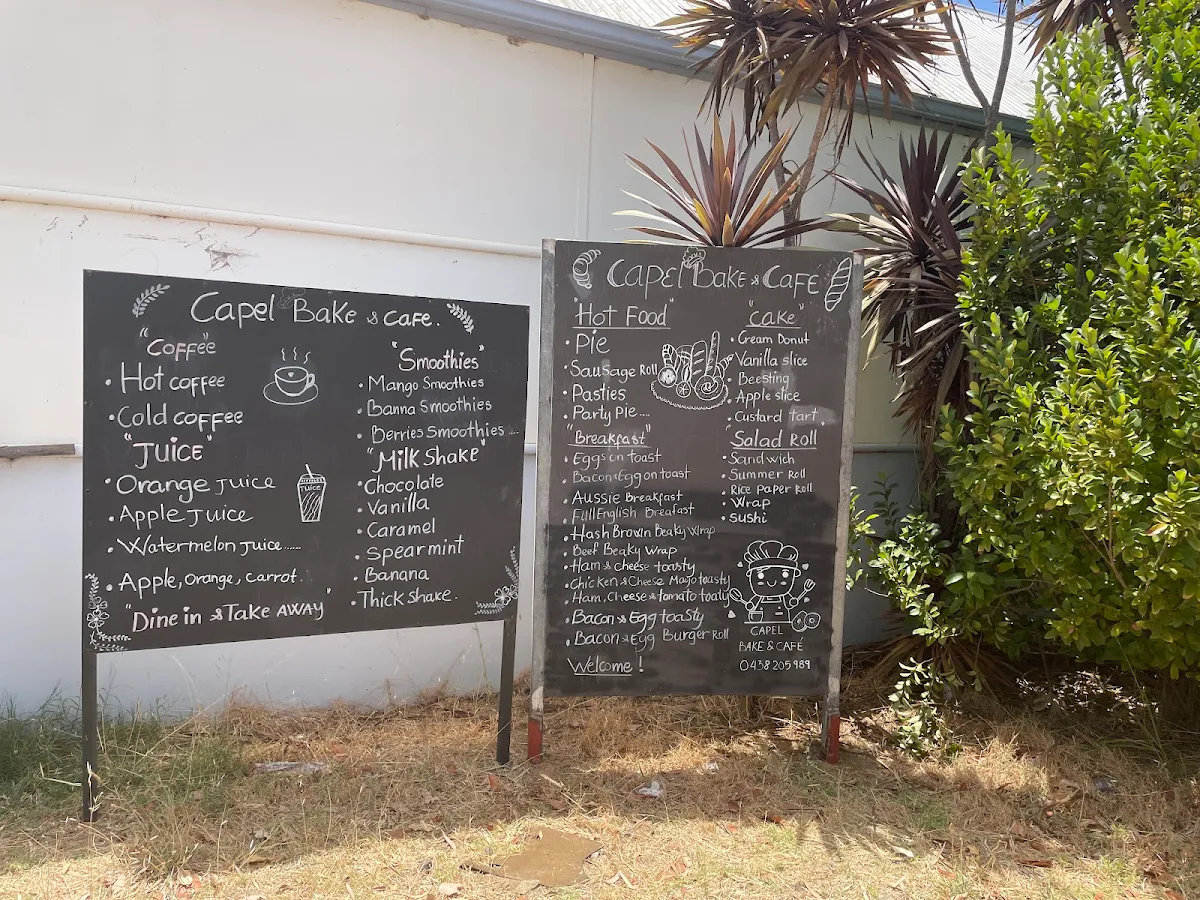 Capel Bake & Cafe.
"Coffee"
• Hot coffee
• Cold coffee
"Juice"
• Orange juice
• Apple Juice
• Watermelon Juice......
• Apple, orange, carrot.
"Dine in & Take AWAY"
Juice
"Smoothies"
• Mango Smoothies
• Banna Smoothies
• Berries Smoothies ...
"Milk Shake"
• Chocolate
• Vanilla
• Caramel
• Spearmint
• Banana
• Thick shake.
Capel Bake & Cafe
"Hot Food"
• Pie
• Sausage Roll
• Pasties
• Party pie....
"Breakfast"
• Eggs on toast
• Bacon & Egg on toast
Aussie Breakfast
• Full English Breafast
• Hash Brown Beaky Wrap
• Beef Beaky Wrap
• Ham & cheese toasty
• Chicken & Cheese Mayo toasty
• Ham, Cheese & tomato toaty
• Bacon & Egg toasty
• Bacon & Egg Burger Roll
Welcome!
"Cake"
• Cream Donut
• Vanilla slice
• Beesting
• Apple slice
• Custard tart
"Salad Roll"
• Sandwich
• Summer Roll
• Rice paper Roll
• Wrap
• Sushi
CAPEL
BAKE & CAFÉ
0438 205 989